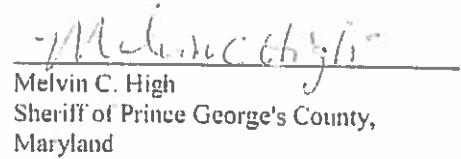 Melvin C High
Melvin C. High
Sheriff of Prince George's County,
Maryland